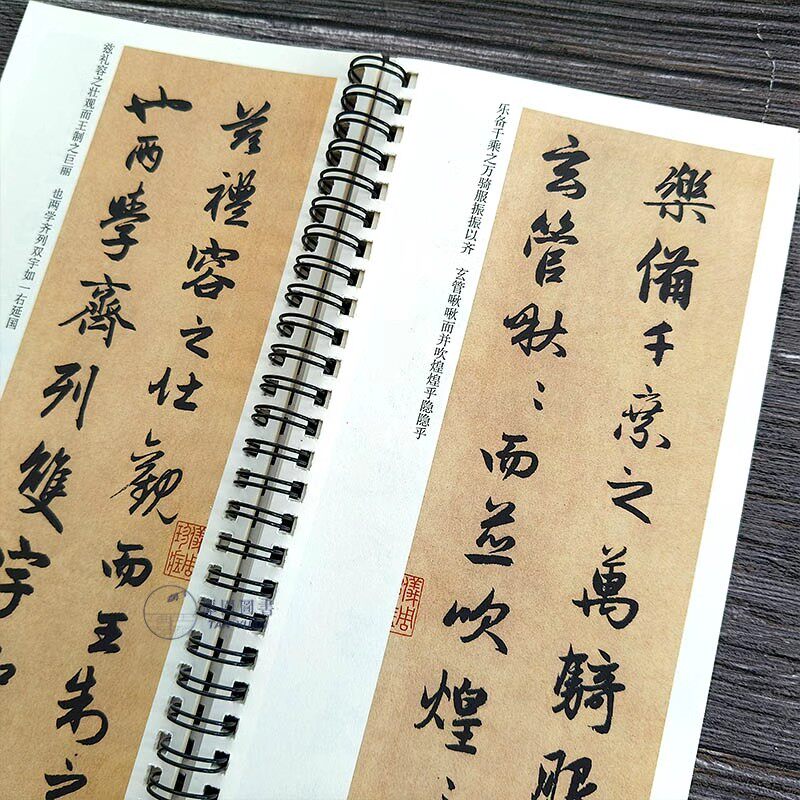 樂備千乘之萬騎服
玄管啾々而並吹煌々
乐备千乘之万骑服振振以齐 玄管啾啾而并吹煌煌乎隐隐乎
茲禮容之壯觀而王制之
也兩學齊列雙宇如
兹礼容之壮观而王制之巨丽 也两学齐列双宇如一右延国